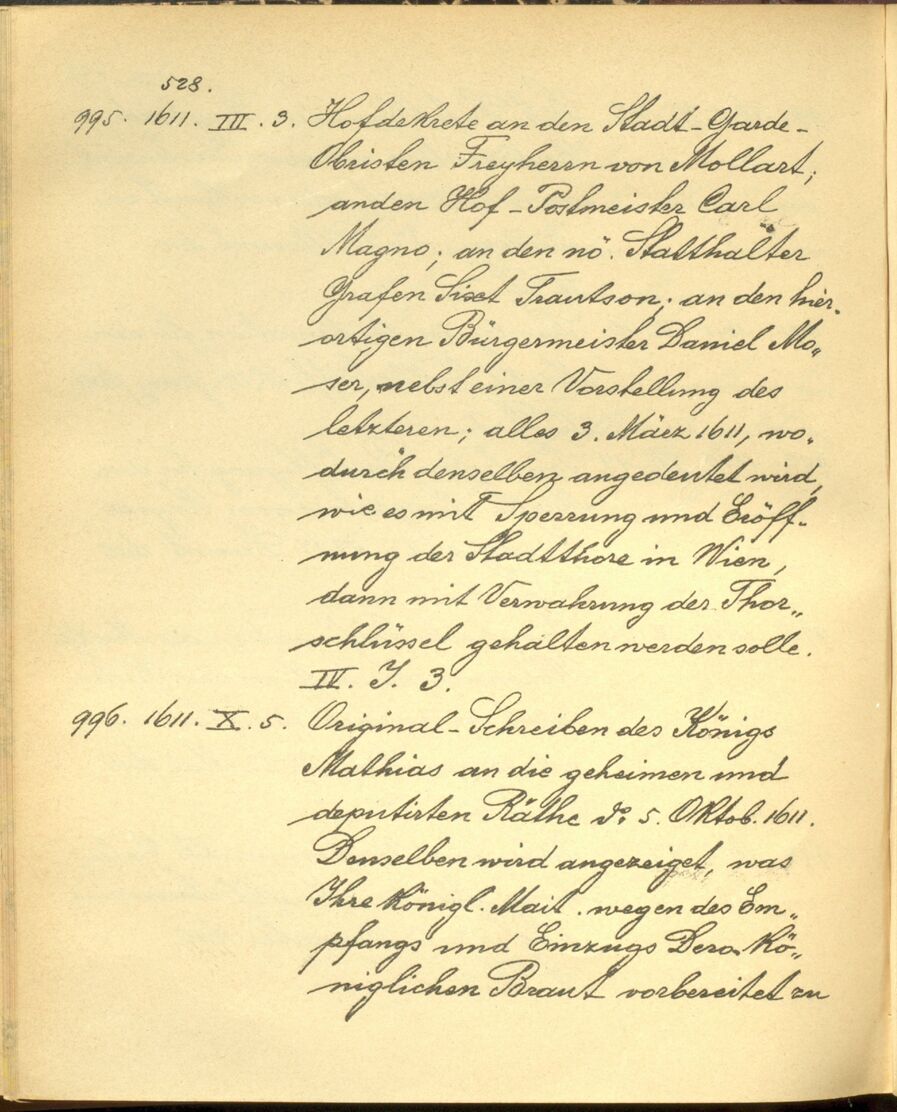 528.
995. 1611. III. 3. Hofdekrete an den Stadt-Garde-
Obristen Freyherrn von Mollart,
an den Hof-Postmeister Carl
Magno; an den nö. Statthalter
Grafen Sixt Trautson; an den hier-
ortigen Bürgermeister Daniel Mo„
ser, nebst einer Vorstellung des
letzteren; alles 3. März 1611, wo„
durch denselben angedeutet wird,
wie es mit Sperrung und Eröff„
nung der Stadtthore in Wien,
dann mit Verwahrung der Thor„
schlüssel gehalten werden solle.
IV. J. 3.
996. 1611. X. 5. Original-Schreiben des Königs
Mathias an die geheimen und
deputirten Räthe do 5. Oktob. 1611.
Denselben wird angezeiget, was
Ihre Königl. Mait. wegen des Em„
pfangs und Einzugs Dero Kö„
niglichen Braut vorbereitet zu